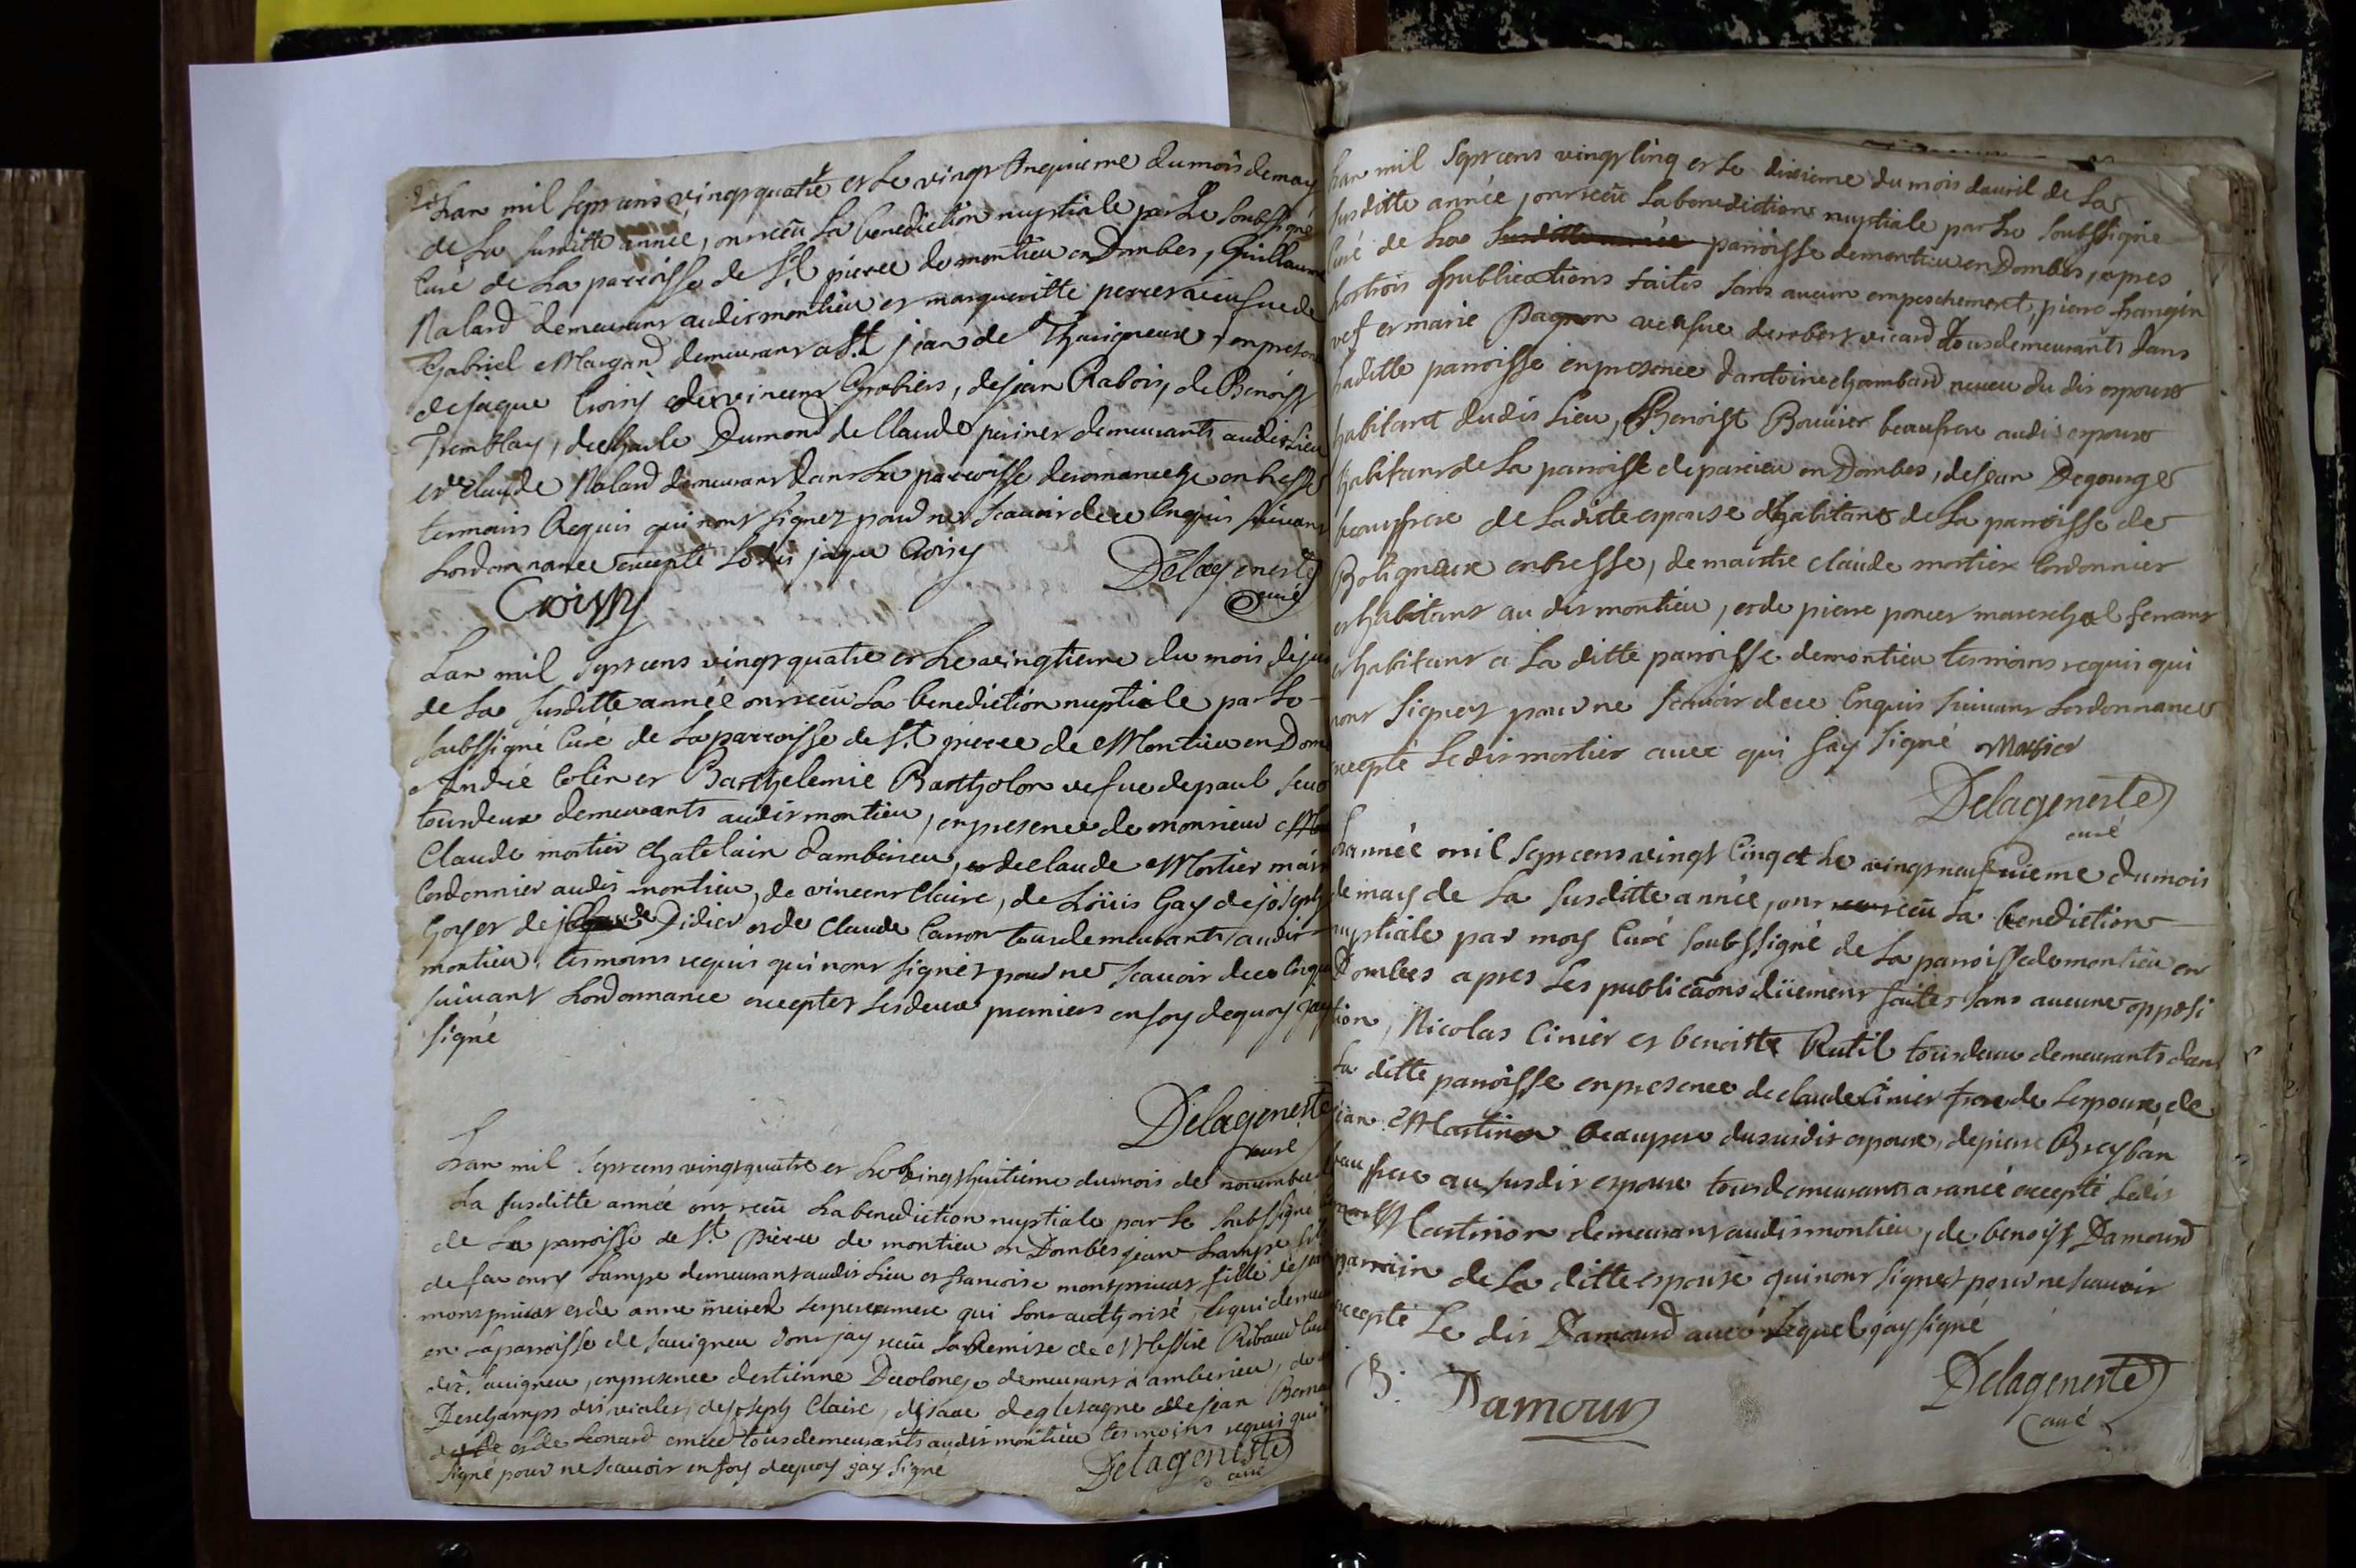 Lan mil sept cens vingt quatre et le vingt cinquieme du mois de may
de La susditte année, ont receu La benediction nuptiale par Le soubssigné
Curé de La parroisse de St pierre de montieu en Dombes, Guillaume
Nalard demeurant audit montieu et margueritte perret veufue de
Gabriel Margand demeurant a St jean de Thurigneux, en presen
de jaque Croisy de vincens Grobiers, de jean Rabois, de Benoist
Tremblay, de Charle Dumond de Claude perinet demeurants audit Lieu
et de claude Nalard demeurant dans La parroisse de romaneche en bresse
temoins Requis qui n'ont signez pour ne scauoir de ce Enquis suiuant
Lordonnance excepté Ledit jaque Croisy
Croissy
Delageneste
curé
Lan mil sept cens vingt quatre et Le vingtieme du mois de jui
de La susditte année ont receu La benediction nuptiale par Le
soubssigné Curé de La parroisse de St pierre de Montieu en Dom
André Colin et Barthelemie Bartholon vefue de paul
tous deux demeurants audit montieu, en presence de monsieur
Claude mortier Chatelain d'amberieu, et de claude Mortier mais
Cordonnier audit montieu, de vincent Claire, de Loüis Gay de joseph
Goyet de Didier et de Claude Carron tous demeurants audit
montieu, tesmoins requis qui n'ont signez pour ne scauoir de ce Enqu
suiuant Lordonnance exceptez Les deux premiers en foy de quoy jay
signé
Delageneste
curé
Lan mil sept cens vingt quatre et Le vingt huitieme du mois de nouembre
La susditte année ont receu La benediction nuptiale par Le soubssigné
de La parroisse de St Pierre de montieu en Dombes jean Lampe fil
de feu enry Lampe demeurant audit Lieu et francoise montpriuat fille de je
montpriuat et de anne ses pere et mere qui Lont authorisé, Lequi demeu
en La parroisse de sauigneu dont jay receu La Remise de Messire Ribaud Cur
dud. sauigneu, en presence d'estienne Decolonge demeurant a amberieu, de
Deschamps dit violet, de joseph Claire, d'isaac deglesagne de jean Berna
et de Leonard tous demeurants audit montieu tesmoins requis qui
signé pour ne scauoir en foy de quoy jay signé
Delageneste
curé
Lan mil sept cens vingt cinq et Le dixieme du mois dauril de La
susditte année, ont receu La benediction nuptiale par Le soubssigné
curé de La susditte année parroisse de montieu en Dombes, apres
Les trois publications faites sans aucun empeschement, pierre Langin
vef et marie Pagnon veufue de robert vicard tous demeurants dans
Laditte parroisse en presence d'antoine chambard neueu du dit espoux
habitant dudit Lieu, Benoist Bouuier beaufrere audit espoux
habitant de La parroisse de parcieu en Dombes, de jean Degourge
beaufrere de Laditte espouse et habitant de La parroisse de
Boligneux en bresse, de maistre claude mortier Cordonnier
et habitant au dit montieu, et de pierre poncet mareschal ferrant
et habitant a La ditte parroisse de montieu tesmoins requis qui
n'ont signez pour ne scauoir de ce Enquis suiuant Lordonnance
excepté Ledit mortier auec qui jay signé Mortier
Delageneste
curé
Lannée mil sept cens vingt Cinq et Le vingt neufuieme du mois
de may de La susditte année, ont receu La benediction
nuptiale par moy Curé soubssigné de La parroisse de montieu en
Dombes apres Les publicaons düement faites sans aucune opposi
tion, Nicolas Cinier et benoitte Rutil tous deux demeurants dans
La ditte parroisse en presence de claude Cinier frere de Lespoux, de
jean Martinon beaupere du susdit espoux, de pierre Breyban
beau frere au susdit espoux tous demeurants a rancé excepté Ledit
Martinon demeurant audit montieu, de benoist Damourd
parrain de La ditte espouse qui n'ont signez pour ne scauoir
excepté Le dit Damourd auec Lequel jay signé
B. Damour
Delageneste
curé